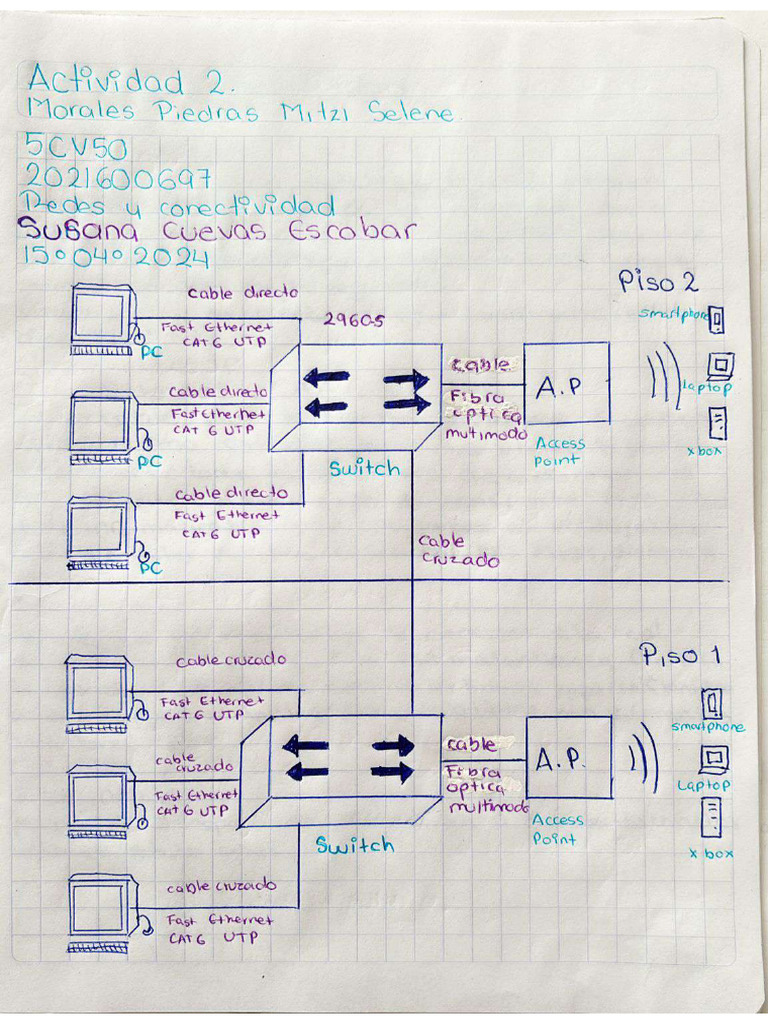 Actividad 2.
Morales Piedras Mitzi Selene.
5CV50
2021600697
Redes y conectividad
Susana Cuevas Escobar
15°04°2024
Piso 2
cable directo
Fast Ethernet
CAT 6 UTP
PC
2960-S
cable directo
Fast Ethernet
CAT 6 UTP
PC
cable directo
Fast Ethernet
CAT 6 UTP
PC
Switch
cable
Fibra
optica
multimodo
A.P
Access
Point
smartphone
laptop
x box
cable
cruzado
Piso 1
cable cruzado
Fast Ethernet
CAT 6 UTP
cable
cruzado
Fast Ethernet
CAT 6 UTP
cable cruzado
Fast Ethernet
CAT 6 UTP
Switch
cable
Fibra
optica
multimodo
A.P.
Access
Point
smartphone
Laptop
x box